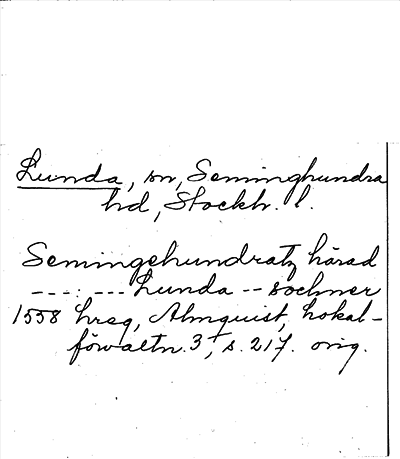 Lunda, sn, Seminghundra
hd, Stockh. l.
Semingehundratz härad
---:--- Lunda -- sochner
1558 hreg, Almquist, Lokal-
förvaltn. 3, s. 217. orig.